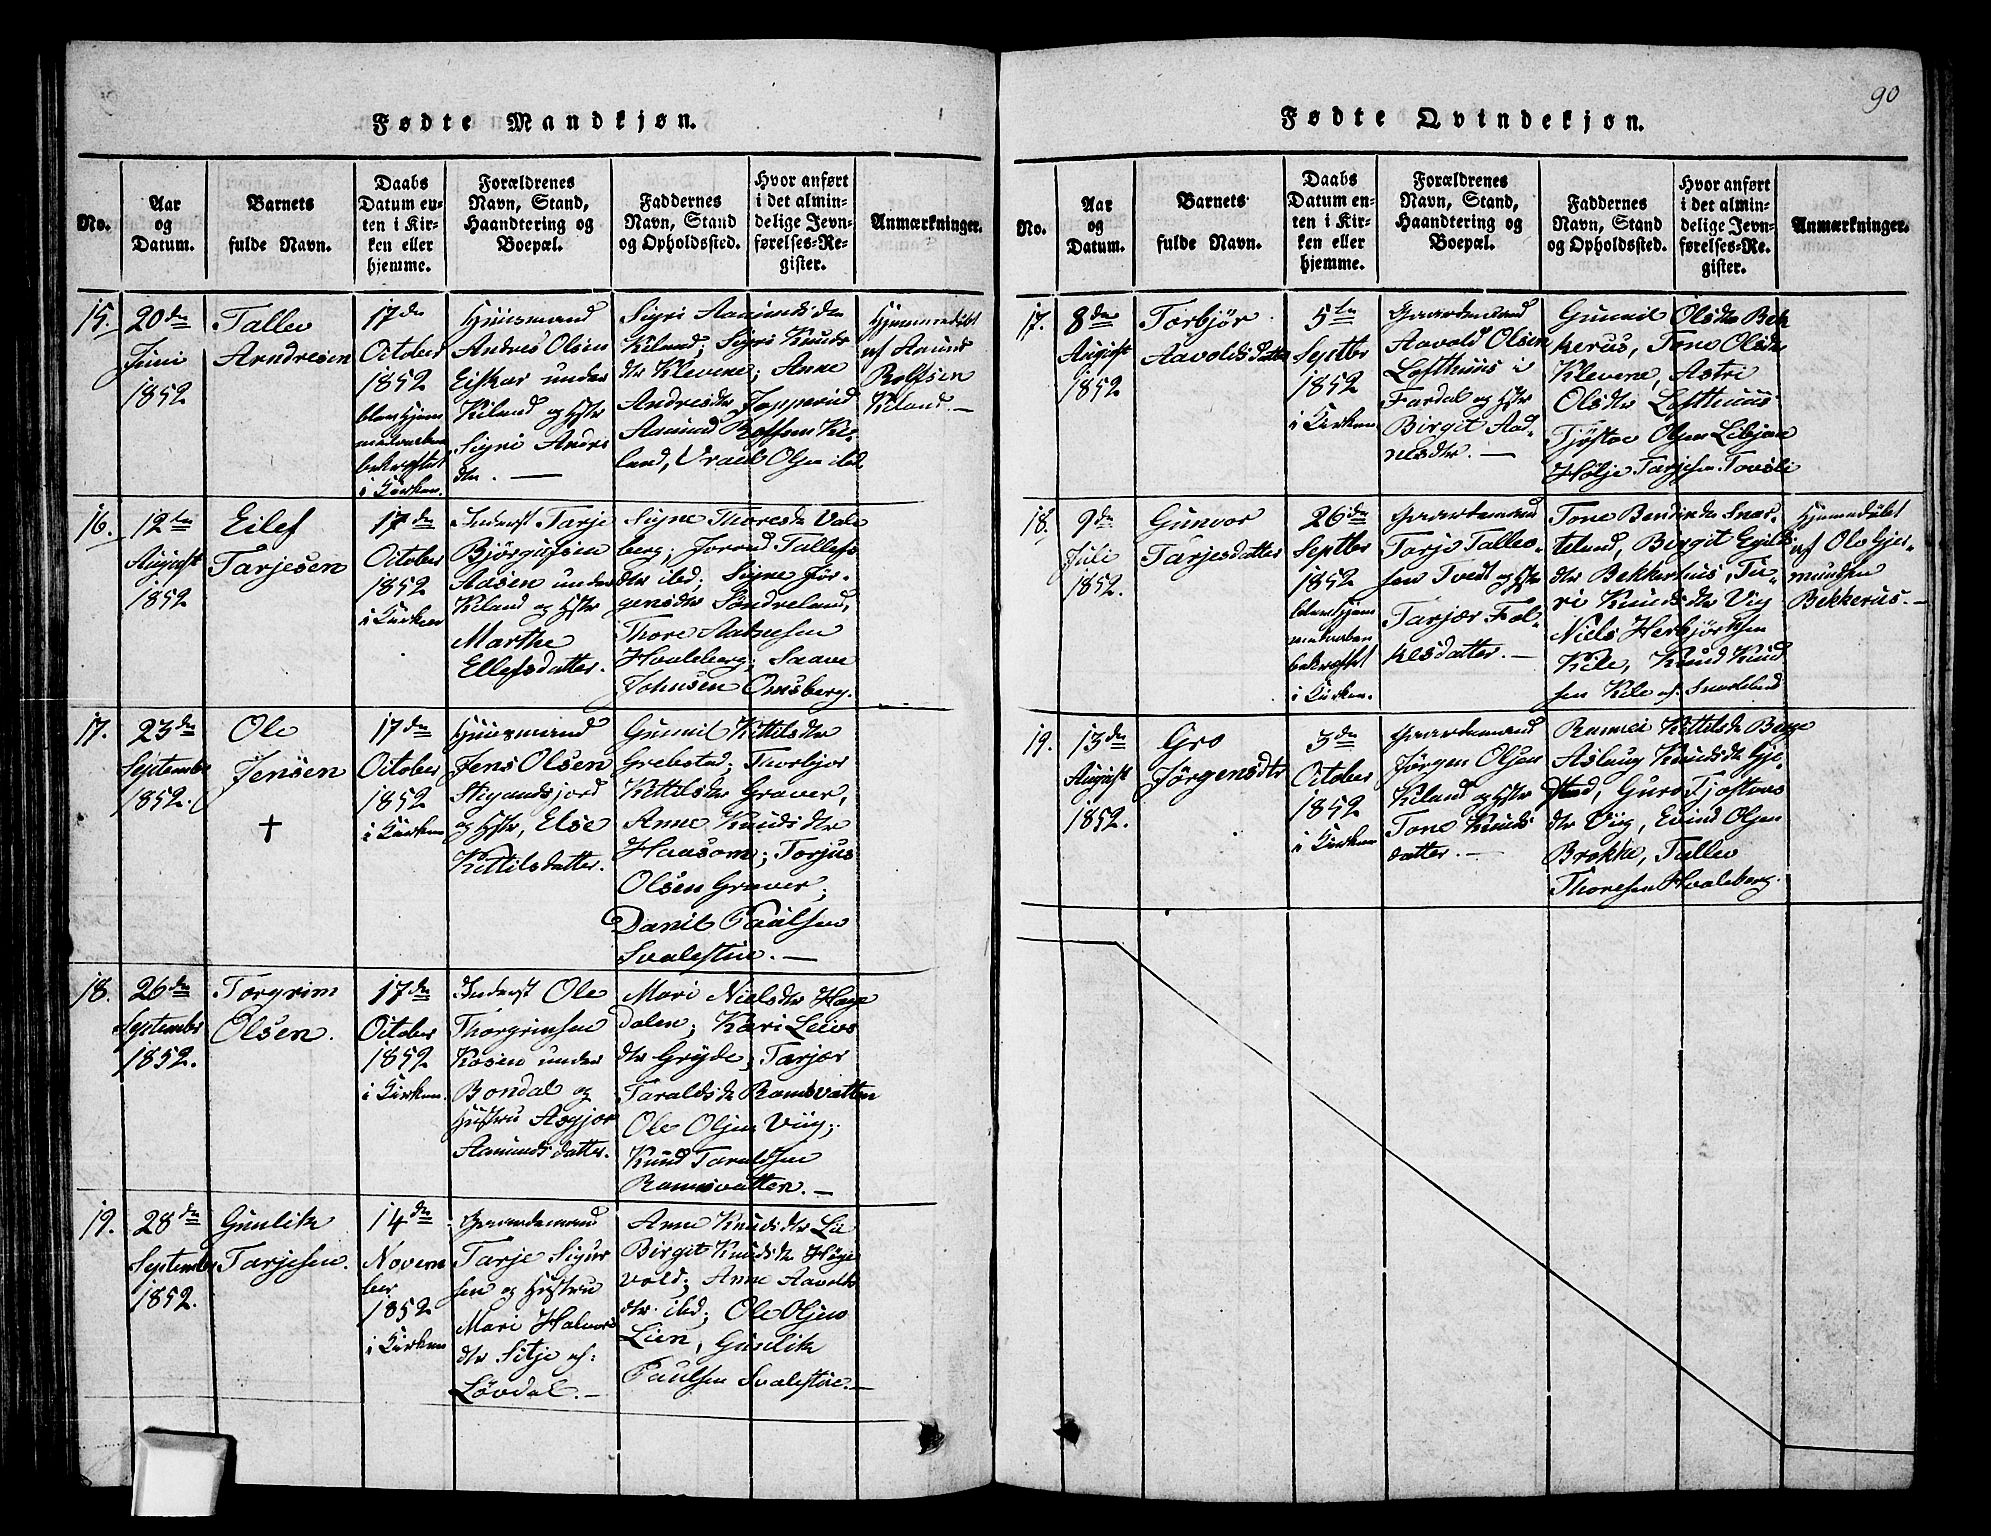 90
Fødte Mandkjøn.
No.
Aar
og
Datum.
Barnets
fulde Navn.
Daabs
Datum en-
ten i Kir-
ken eller
hjemme.
Forældrenes
Navn, Stand,
Haandtering og
Boepæl.
Faddernes
Navn, Stand
og Opholdssted.
Hvor anført
i det almin-
delige Jevn-
førelses-Re-
gister.
Anmærkninger.
15.
20de
Juni
1852
Tallev
Andresen
17de
October
1852
blev hjem
medaaben
bekræftet
i Kirken.
Huusmand
Andres Olsen
Eiskar under
Kiland og Hstr
Sigri Anders
dtr. —
Sigri Aamundsdtr
Kiland; Sigri Knuds
dtr Klevene; Anne
Andresdtr Jopperud
Aamund Rolfsen Ki-
land, Olsen ibd.
Hjemmedøbt
af Amund
Rolfsen
Kiland. —
16.
12te
August
1852
Eilef
Tarjesen
17de
October
1852
i Kirken
Inderst Tarje
Bjørgufsen
Aasen under
Kiland og Hstr
Marthe
Ellefsdatter.
Signe Thoresdtr Vale
berg; Tallefs
dtr ibd; Signe Jør-
gensdtr Søndreland,
Thore
Hvaleberg; Saave
Johnsen Omsberg.
17.
23de
September
1852.
Ole
Jensen
+
17de
October
1852
i Kirken
Huusmand
Jens Olsen
Stigandsjord
og Hstr, Else
Kittilsdatter.
Gunnil Kittilsdtr
Grebstad; Thorbjør
Kittilsdtr Graver,
Anne Knudsdtr
Haasom; Torjus
Olsen Graver;
Danil Paulsen
Svalestue. —
18.
26de
September
1852.
Torgrim
Olsen.
17de
October
1852
i Kirken.
Inderst Ole
Thorgrimsen
Kosen under
Bondal og
Hustru Asgjær
Aamundsdatter.
Mari Nielsdtr Hage
dalen; Kari Leivs
dtr Gryde; Tarjær
Taraldsdtr Ramsvatten
Ole Olsen Viig;
Knud Taraldsen
Ramsvatten. —
19.
28de
September
1852.
Gunlik
Tarjesen.
14de
Novem
ber
1852
i Kirken
Gaardemand
Tarje Sigur
sen og Hustru
Mari Halvors
dtr Sitje af:
Løvdal. —
Anne Knudsdtr Lie
Birgit Knudsdtr Høge
vold; Anne Aavolds
dtr. ibd; Ole Olsen
Lien, Gunlik
Paulsen Svalestue. —
Fødte Qvindekjøn.
No.
Aar
og
Datum.
Barnets
fulde Navn.
Daabs
Datum en-
ten i Kir-
ken eller
hjemme.
Forældrenes
Navn, Stand,
Haandtering og
Boepæl.
Faddernes
Navn, Stand
og Opholdssted.
Hvor anført
i det almin-
delige Jevn-
førelses-Re-
gister.
Anmærkninger.
17.
8de
August
1852
Torbjør
Aavoldsdatter
5te
Septbr
1852
i Kirken
Gaardemand
Aavold Olsen
Lofthuus i
Fardal og Hstr
Birgit Aad-
nesdtr. —
Gunnil Olsdtr Bek
kerus, Tone Olsdtr
Klevene, Astri
Olsdtr Lofthuus
Tjøstov Olsen Libjan
Hølje Tarjesen Tovsli
18.
9de
Juli
1852.
Gunvor
Tarjesdatter
26de
Septbr
1852
blev hjem
medaaben
bekræftet
i Kirken.
Gaardemand
Tarje Tallev-
sen Tvedt og Hstr
Tarjær Fol-
kesdatter. —
Tone Bendiksdtr Snar-
teland, Birgit Egilds
dtr Bekkerhus, Tu-
ri Knudsdtr Viig
Niels Herbjørnsen
Kile, Knud Knud
sen Kile af: Snarteland
Hjemmedøbt
af Ole Gjer-
mundsen
Bekkerus. —
19.
13de
August
1852.
Gro
Jørgensdtr
3de
October
1852
i Kirken
Gaardemand
Jørgen Olsen
Kiland og Hstr
Tone Knuds
datter. —
Rannei Kittilsdtr
Aslaug Knudsdtr Gje-
stad, Guro Tjostovs
dtr Viig, Eivind Olsen
Brokke, Tallev
Thoresen Hvaleberg.